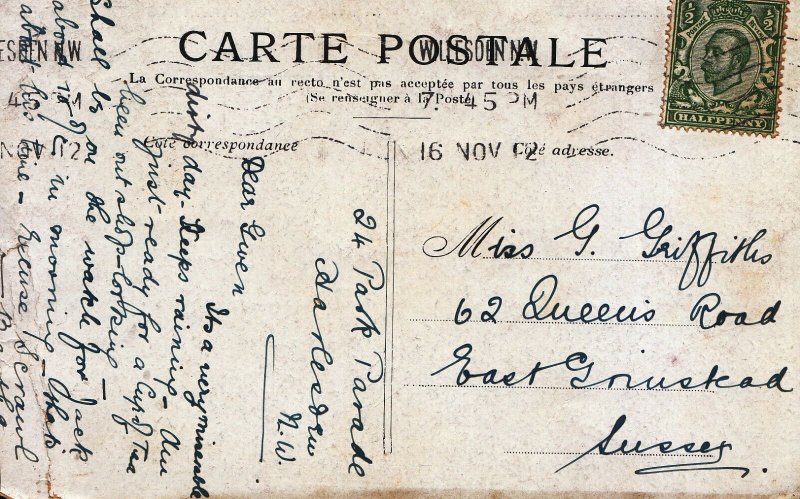 CARTE POSTALE
WILLESDEN N.W
7. 45 PM
16 NOV 12
La Correspondance au recto n'est pas acceptée par tous les pays étrangers
(Se renseigner à la Poste)
Côté correspondance
Côté adresse.
1/2 1/2
HALFPENNY
24 Park Parade
Harlesden
N.W.
Dear Gwen
Its a very miserable
dirty day - Keeps raining - Am
just ready for a Cup of Tea
been out shop-looking -
Shall be on the watch for Jack
about in morning - that's
his - Excuse Scrawl
Miss G. Griffiths
62 Queens Road
East Grinstead
Sussex.